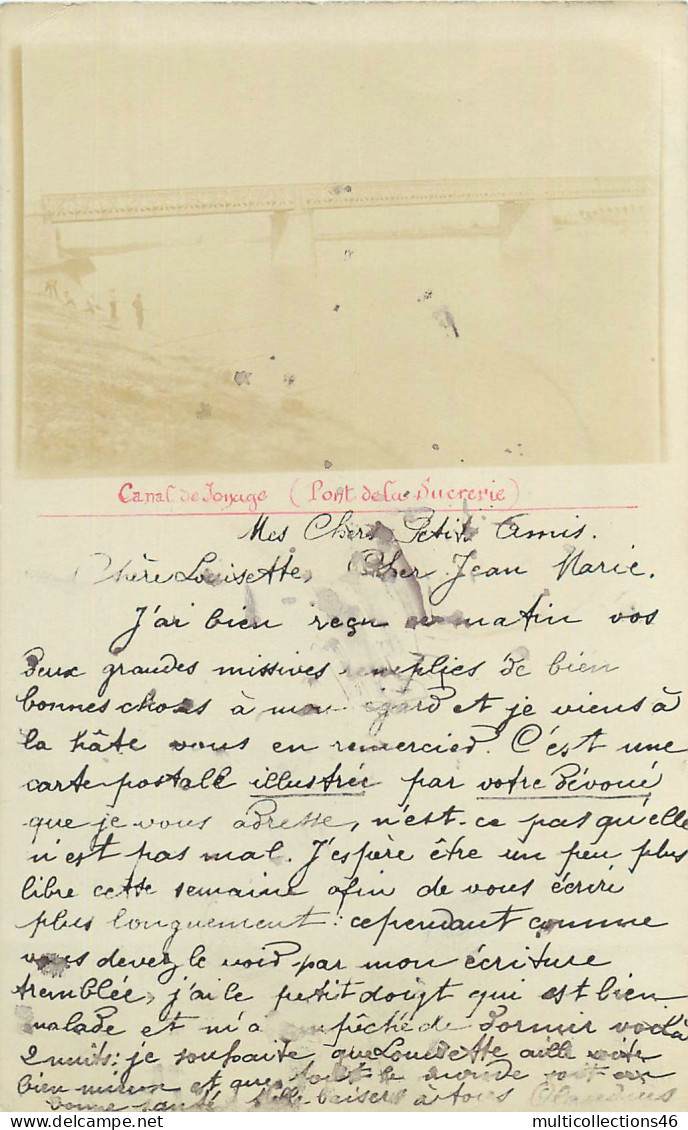 Canal de Jonage (Pont de la Sucrerie)
Mes Chers Petits Amis.
Chère Louisette, Cher Jean Marie.
J'ai bien reçu ce matin vos
deux grandes missives remplies de bien
bonnes choses à mon égard et je viens à
la hâte vous en remercier. C'est une
carte postale illustrée par votre dévoué
que je vous adresse, n'est-ce pas qu'elle
n'est pas mal. J'espère être un peu plus
libre cette semaine afin de vous écrire
plus longuement : cependant comme
vous devez le voir par mon écriture
tremblée, j'ai le petit doigt qui est bien
malade et m'a empêché de dormir voilà
2 nuits : je souhaite que Louisette aille vite
bien mieux et que tout le monde soit en
bonne santé Mille baisers à tous
delcampe.net
multicollections46